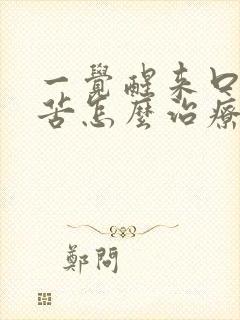 一覺醒来口
苦怎麼治療
鄭問